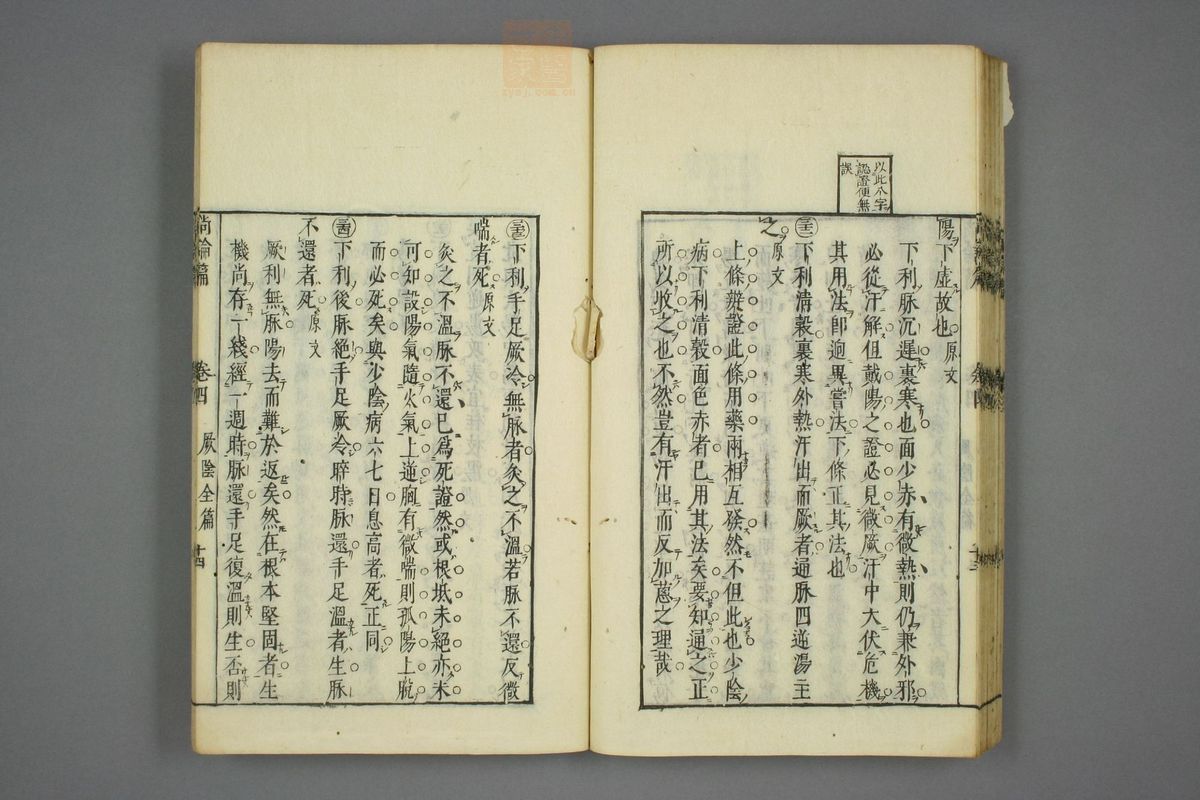 以此八字
認證便無
誤
陽下虛故也原文
下利脉沉遲裏寒也面少赤有微熱則仍兼外邪
必從汗解但戴陽之證必見微厥汗中大伏危機
其用法卽迥異嘗法下條正其法也
下利清穀裏寒外熱汗出而厥者通脉四逆湯主
之原文
上條辨證此條用藥兩相互發然不但此也少陰
病下利清穀面色赤者已用其法矣要知通之正
所以收之也不然豈有汗出而反加葱之理哉
下利手足厥冷無脉者灸之不溫若脉不還反微
喘者死原文
灸之不溫脉不還已爲死證然或根柢未絕亦未
可知設陽氣隨火氣上逆胸有微喘則孤陽上脫
而必死矣與少陰病六七日息高者死正同
下利後脉絕手足厥冷晬時脉還手足溫者生脉
不還者死原文
厥利無脉陽去而難於返矣然在根本堅固者生
機尚存一綫經一週時脉還手足復溫則生否則
尚論篇 卷四 厥陰全篇 十四
zysj.com.cn